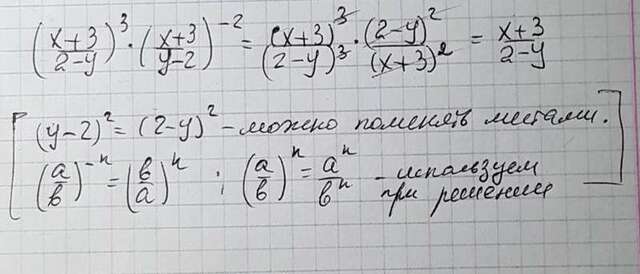 ((x+3)/(2-y))³ · ((x+3)/(y-2))⁻² = (x+3)³/(2-y)³ · (2-y)²/(x+3)² = (x+3)/(2-y)
(y-2)² = (2-y)² - можно поменять местами.
(a/b)⁻ⁿ = (b/a)ⁿ ; (a/b)ⁿ = aⁿ/bⁿ - используем
при решении